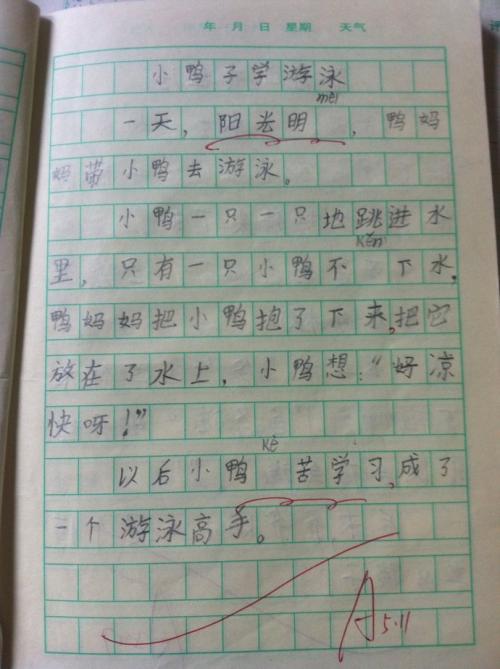 年 月 日 星期 天气
小鸭子学游泳
mèi
一天，阳光明 ，鸭妈
妈带小鸭去游泳。
小鸭一只一只地跳进水
kěn
里，只有一只小鸭不 下水，
鸭妈妈把小鸭抱了下来，把它
放在了水上，小鸭想：“好凉
快呀！”
kè
以后小鸭 苦学习，成了
一个游泳高手。
A 5.11